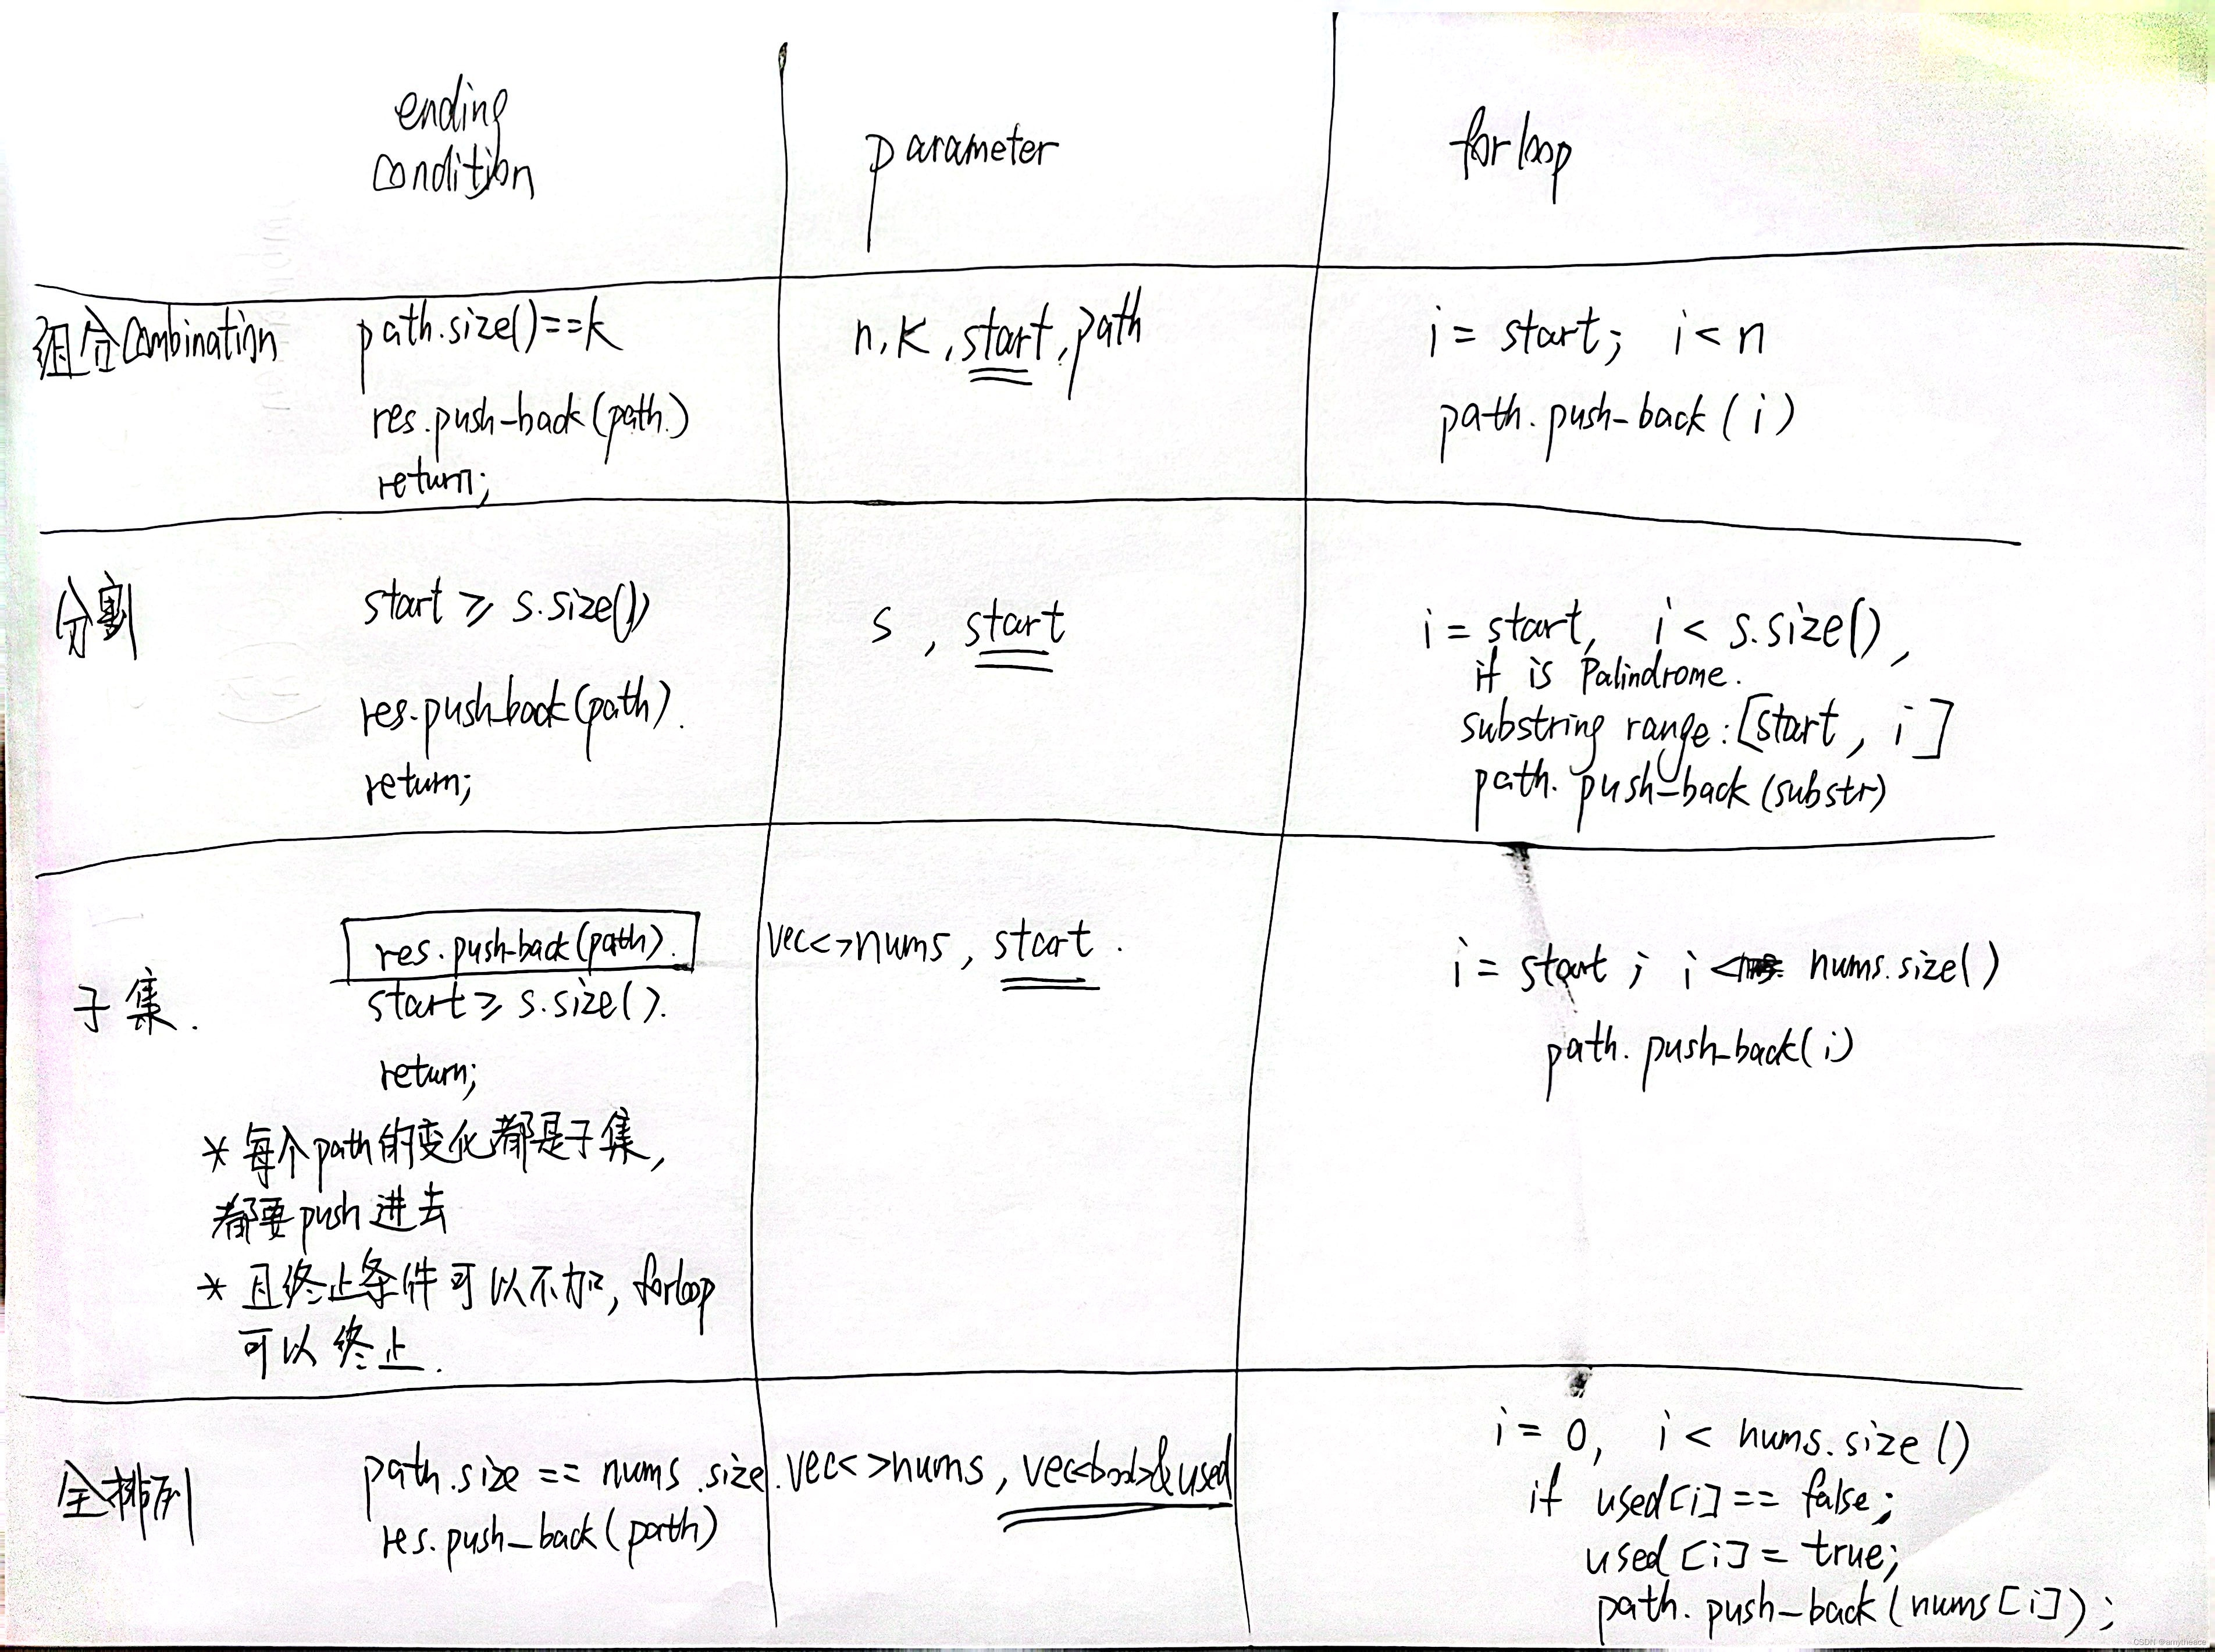 ending
condition
parameter
for loop
组合 Combination
path.size()==k
res.push-back(path.)
return;
n, K, start, path
i = start; i < n
path.push-back(i)
分割
start ≥ s.size()
res.push-back(path).
return;
s, start
i = start, i < s.size(),
if is Palindrome.
substring range: [start, i]
path.push-back(substr)
子集.
res.push-back(path).
start ≥ s.size().
return;
* 每个path的变化都是子集,
都要push进去
* 且终止条件可以不加, forloop
可以终止.
vec<>nums, start.
i = start; i < nums.size()
path.push-back(i)
全排列
path.size == nums.size.
res.push-back(path)
vec<>nums, vec<bool>&used
i = 0, i < nums.size()
if used[i] == false;
used[i] = true;
path.push-back(nums[i]);